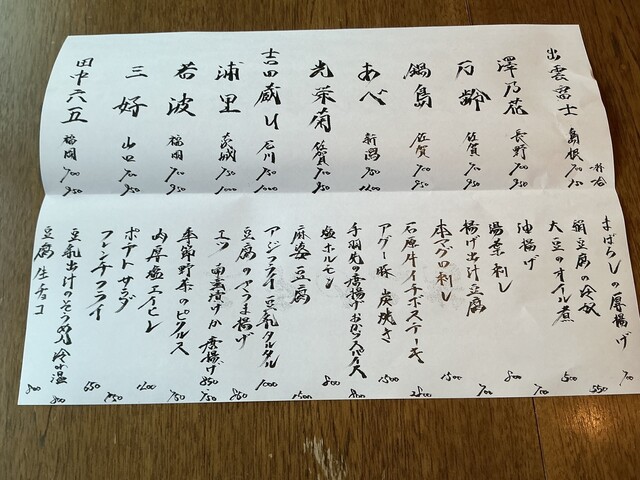 一杯 一合
出雲富士 島根 700 950
澤乃花 長野 700 950
万齢 佐賀 700 950
鍋島 佐賀 700 950
あべ 新潟 750 1200
光栄菊 佐賀 700 950
吉田蔵U 石川 750 1000
浦里 茨城 750 1000
若波 福岡 700 950
三好 山口 700 950
田中六五 福岡 700 950
まぼろしの厚揚げ 700
絹豆腐の冷奴 550
大豆のオイル煮 500
油揚げ 700
湯葉刺し 800
揚げ出汁豆腐 700
本マグロ刺し 1500
石原牛イチボステーキ 2800
アグー豚 炭焼き 1500
手羽先の唐揚げ
塩ホルモン 800
麻婆豆腐 1500
アジフライ 豆乳タルタル 1000
豆腐のやつま揚げ
季節野菜のピクルス 750
肉厚塩エイヒレ 1200
ポテトサラダ
フレンチフライ 650
豆乳出汁のそうめん 冷or温 800
豆腐生チョコ 500